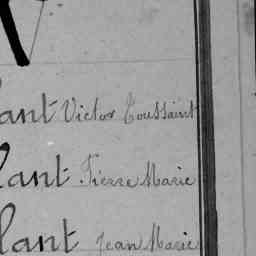 lant Victor Toussaint
lant Pierre Marie
lant Jean Marie